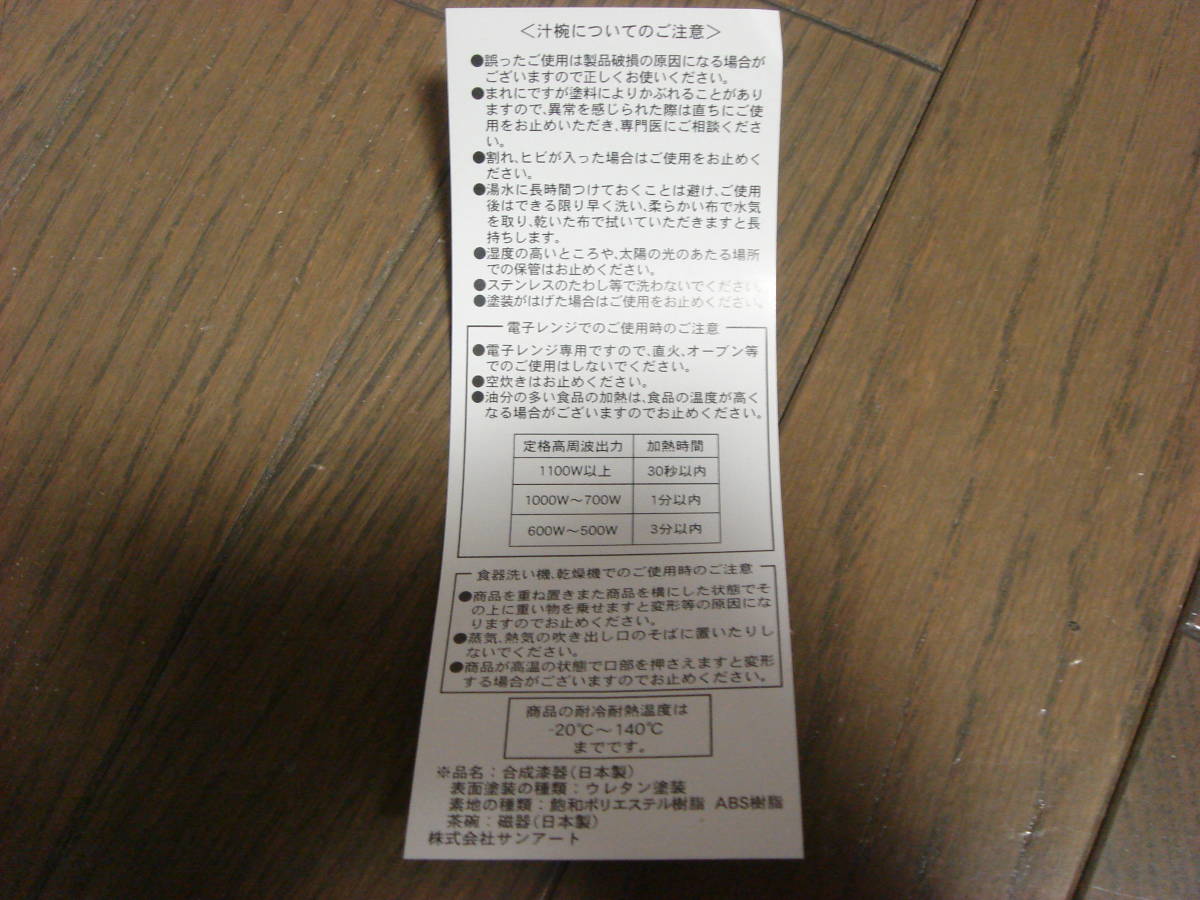 ＜汁椀についてのご注意＞
●誤ったご使用は製品破損の原因になる場合が
ございますので正しくお使いください。
●まれにですが塗料によりかぶれることがあり
ますので、異常を感じられた際は直ちにご使
用をお止めいただき、専門医にご相談くださ
い。
●割れ、ヒビが入った場合はご使用をお止めく
ださい。
●湯水に長時間つけておくことは避け、ご使用
後はできる限り早く洗い、柔らかい布で水気
を取り、乾いた布で拭いていただきますと長
持ちします。
●湿度の高いところや、太陽の光のあたる場所
での保管はお止めください。
●ステンレスのたわし等で洗わないでください。
●塗装がはげた場合はご使用をお止めください。
電子レンジでのご使用時のご注意
●電子レンジ専用ですので、直火、オーブン等
でのご使用はしないでください。
●空炊きはお止めください。
●油分の多い食品の加熱は、食品の温度が高く
なる場合がございますのでお止めください。
定格高周波出力 加熱時間
1100W以上 30秒以内
1000W～700W 1分以内
600W～500W 3分以内
食器洗い機、乾燥機でのご使用時のご注意
●商品を重ね置きまた商品を横にした状態でそ
の上に重い物を乗せますと変形等の原因にな
りますのでお止めください。
●蒸気、熱気の吹き出し口のそばに置いたりし
ないでください。
●商品が高温の状態で口部を押さえますと変形
する場合がございますのでお止めください。
商品の耐冷耐熱温度は
-20℃～140℃
までです。
※品名：合成漆器（日本製）
表面塗装の種類：ウレタン塗装
素地の種類：飽和ポリエステル樹脂 ABS樹脂
茶碗：磁器（日本製）
株式会社サンアート